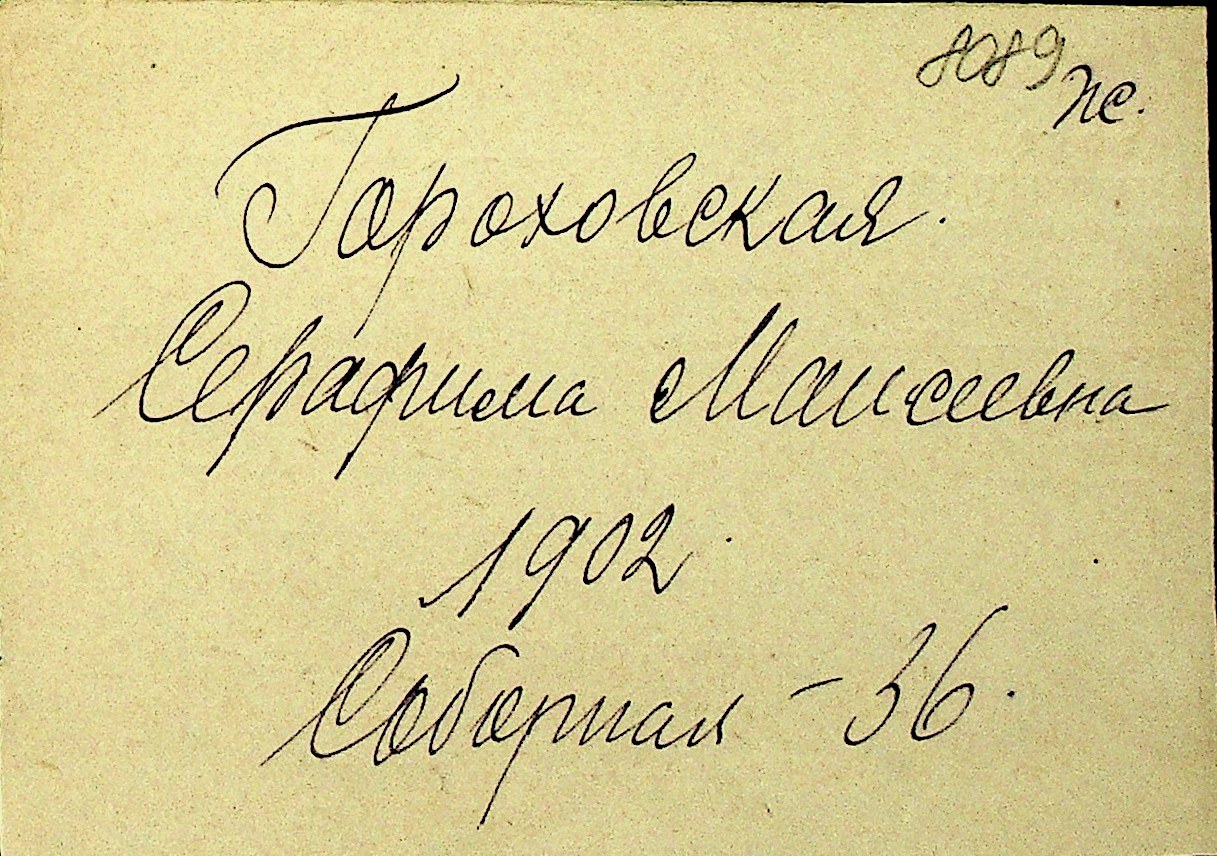 8089 пс.
Гороховская.
Серафима Моисеевна
1902.
Соборная - 36.